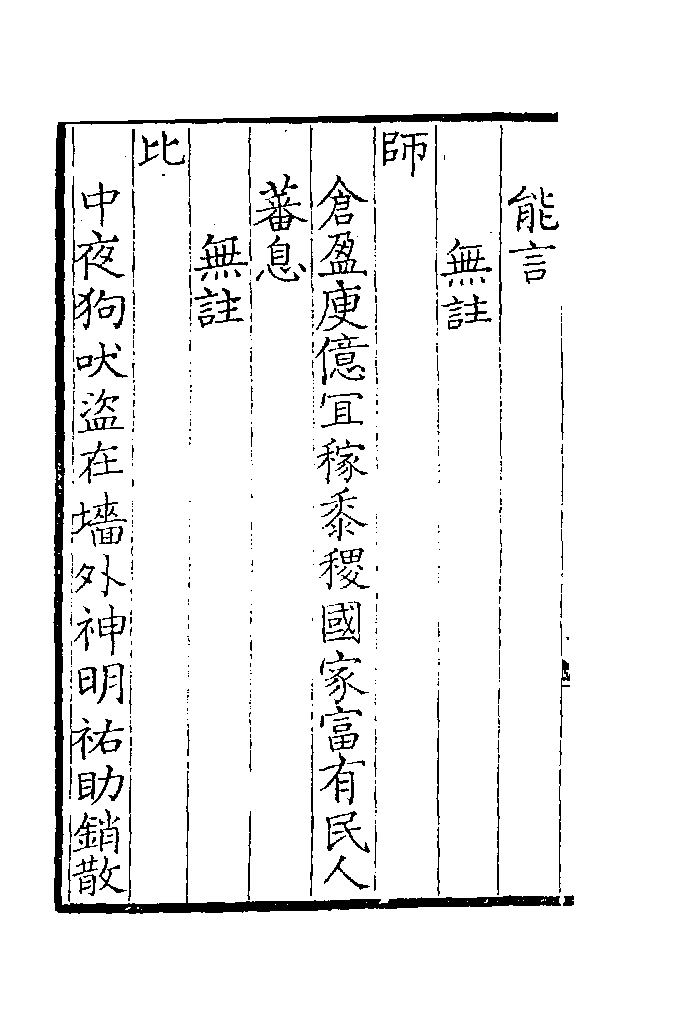 能言
無註
師
倉盈庾億冝稼黍稷國家富有民人
蕃息
無註
比
中夜狗吠盜在墻外神明祐助銷散